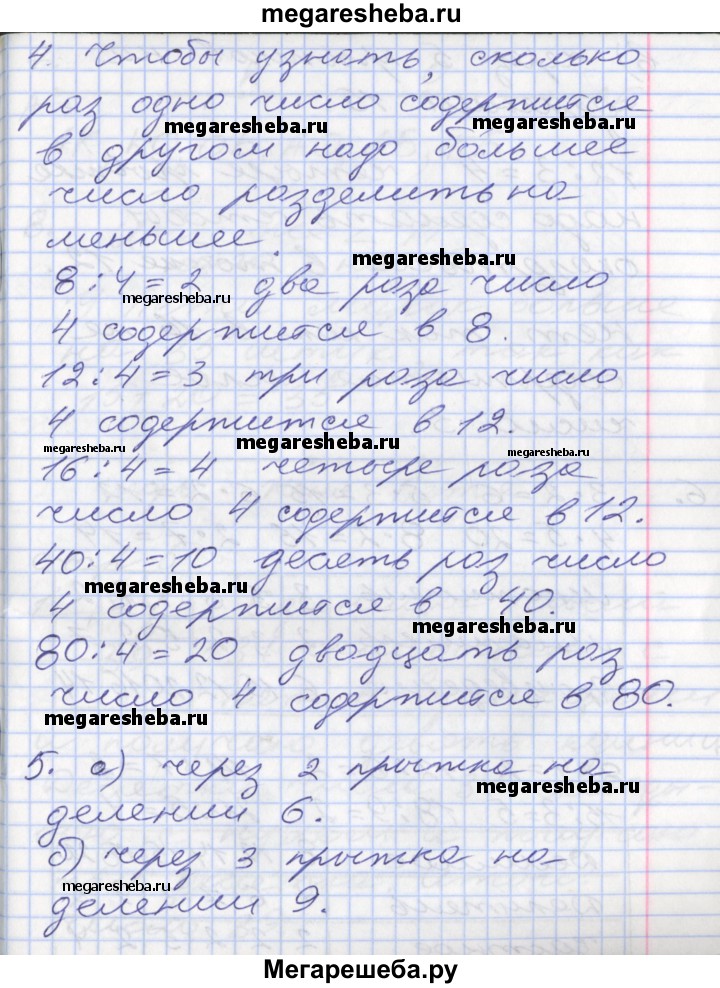 megaresheba.ru
4. Чтобы узнать, сколько
раз одно число содержится
megaresheba.ru megaresheba.ru
в другом надо большее
число разделить на
меньшее.
megaresheba.ru
8:4=2 два раза число
megaresheba.ru
4 содержится в 8.
12:4=3 три раза число
4 содержится в 12.
megaresheba.ru megaresheba.ru
16:4=4 четыре раза
число 4 содержится в 12.
40:4=10 десять раз число
megaresheba.ru
4 содержится в 40.
megaresheba.ru
80:4=20 двадцать раз
число 4 содержится в 80.
megaresheba.ru
5. а) через 2 прыжка на
megaresheba.ru
делении 6.
б) через 3 прыжка на
megaresheba.ru
делении 9.
Мегарешеба.ру